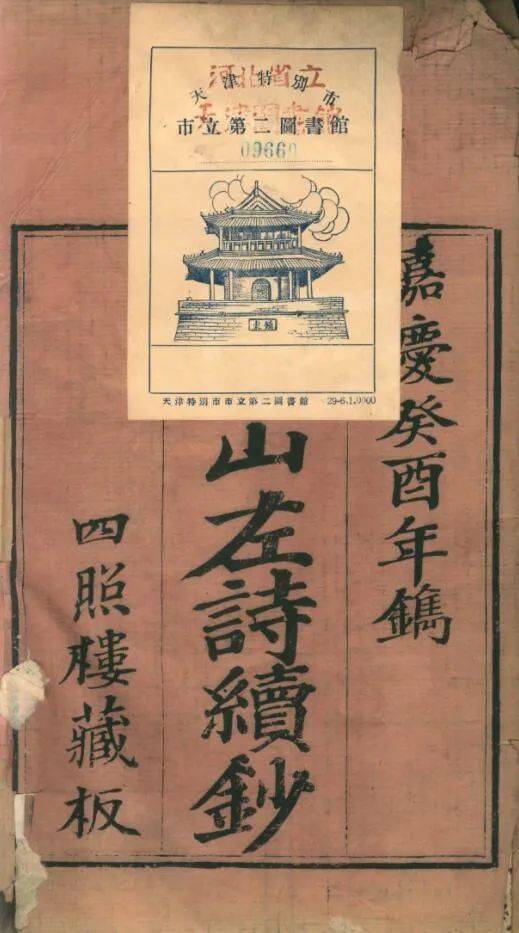 河北省立
天津圖書館
天津特別市
市立第二圖書館
09660
天津特別市市立第二圖書館 29-6.1.0000
嘉慶癸酉年鐫
山左詩續鈔
四照樓藏板